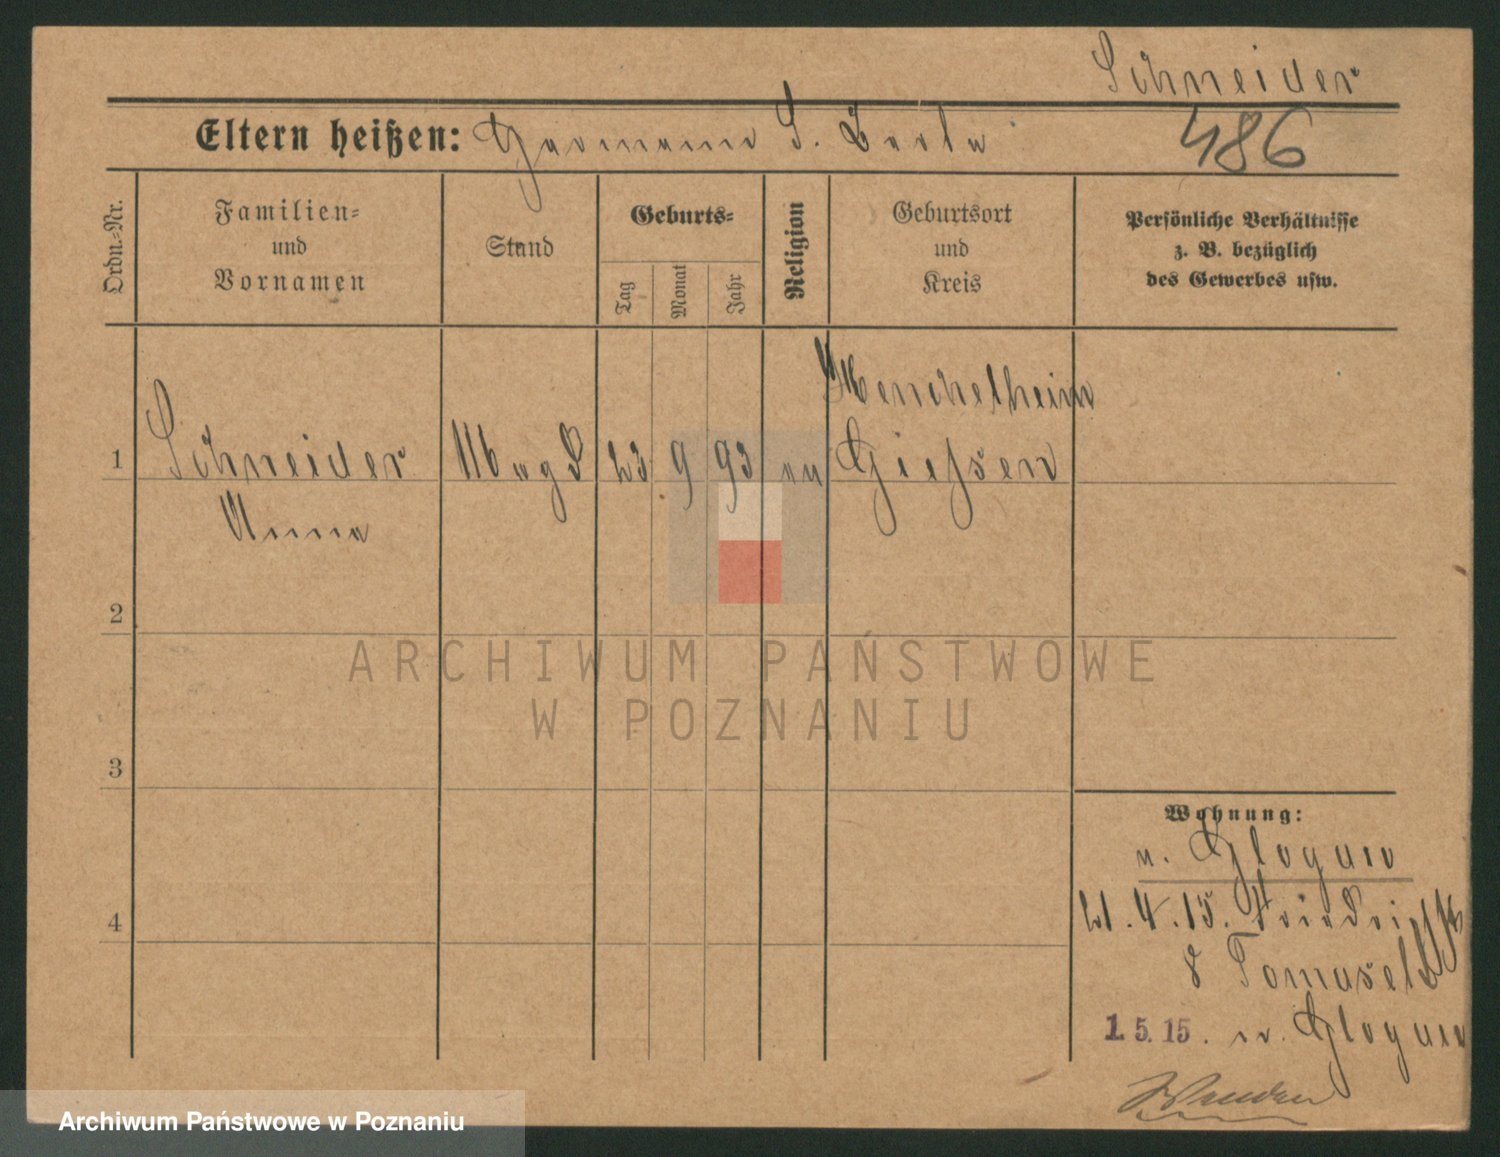 Schneider
Eltern heißen: Hermann S. Berta
486
Ordn.-Nr.
Familien-
und
Vornamen
Stand
Geburts-
Tag
Monat
Jahr
Religion
Geburtsort
und
Kreis
Persönliche Verhältnisse
z. B. bezüglich
des Gewerbes usw.
1
Schneider
Anna
Magd
23
9
93
ev
Giessen
2
3
4
Wohnung:
n. Glogau
21.4.15. Friedrichstr
8 Tomasek
1.5.15. n. Glogau
ARCHIWUM PAŃSTWOWE
W POZNANIU
Archiwum Państwowe w Poznaniu